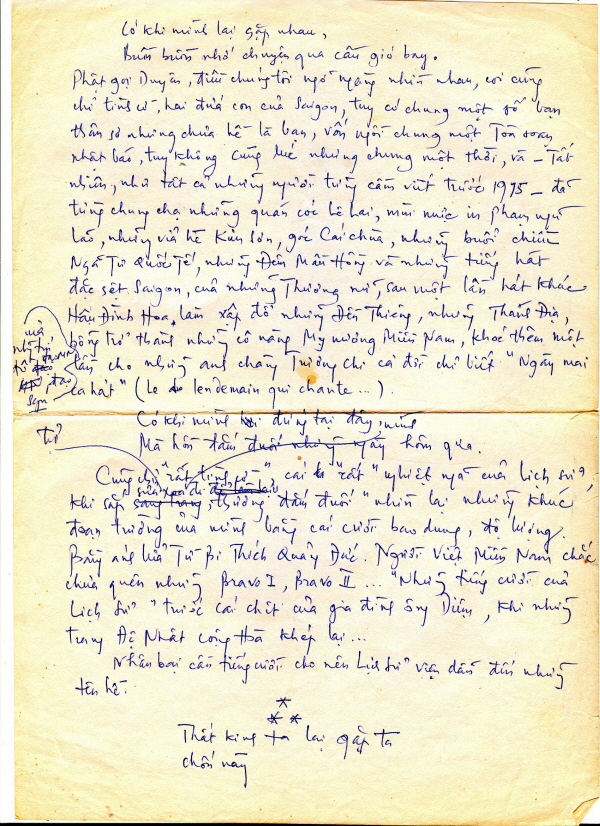 Có khi mình lại gặp nhau,
Buồn buồn nhớ chuyện qua cầu gió bay.
Phật gọi Duyên, điều chúng tôi ngỡ ngàng nhìn nhau, coi cũng
chỉ tình cờ, hai đứa con của Saigon, tuy có chung một số bạn
thân sơ nhưng chưa hề là bạn, vốn ngồi chung một Tòa soạn
nhật báo, tuy không cùng lúc nhưng chung một thời, và – Tất
nhiên, như tất cả những người từng cầm viết trước 1975 – đã
từng chung chạ những quán cóc lề hai, mùi mực in Phạm Ngũ
Lão, những vỉa hè góc Cái chùa, những buổi chiều
Ngã Tư Quốc Tế, những Đêm Mầu Hồng và những tiếng hát
đặc sệt Saigon, của những Thương nữ, sau một lần hát khúc
Hậu Đình Hoa, làm xập đổ những Đền Thiêng, những Thánh Địa,
bỗng trở thành những cô nàng Mỵ nương Miền Nam, khoé thêm một
lần cho những anh chàng Trương Chi cả đời chỉ biết "Ngày mai
ca hát" (Le lendemain qui chante...).
mà
những
Có khi mình đứng tại đây
Mà hồn đắm đuối những ngày hôm qua.
từ
Cũng chỉ "rất tình cờ", cái "rất" nghiệt ngã của lịch sử,
khi sắp thường đắm đuối nhìn lại những khúc
đoạn trường của mình bằng cái cười bao dung, độ lượng.
Bằng ánh lửa Từ Bi Thích Quảng Đức. Người Việt Miền Nam chắc
chưa quên những Bravo I, Bravo II... "Những tiếng cười của
Lịch Sử" trước cái chết của gia đình ông Diệm, khi những
trang Đệ Nhất Cộng Hòa khép lại...
Nhân loại cần tiếng cười cho nên Lịch sử viện dẫn đến những
tên hề.
* * *
Thất kinh ta lại gặp ta
chốn này